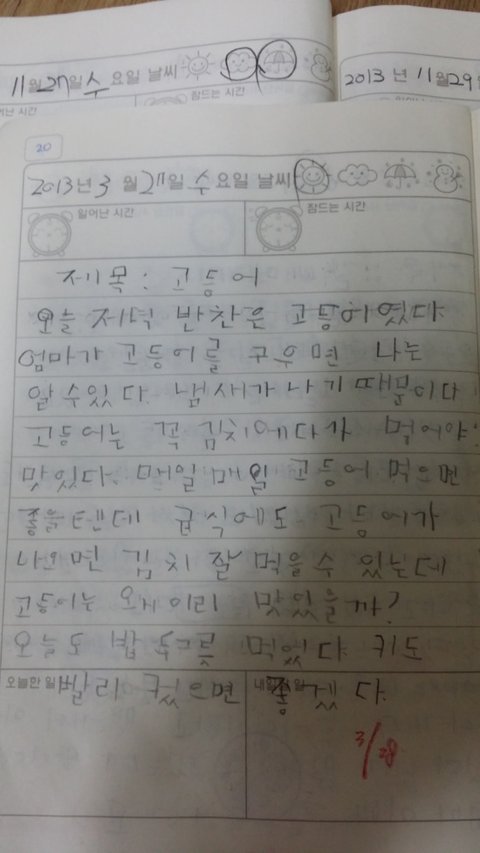 11월 27일 수요일 날씨
2013년 11월 29일
잠드는 시간
20
2013년 3월 27일 수요일 날씨
일어난 시간
잠드는 시간
제목: 고등어
오늘 저녁 반찬은 고등어였다.
엄마가 고등어를 구우면 나는
알 수 있다. 냄새가 나기 때문이다
고등어는 꼭 김치에다가 먹어야
맛있다. 매일매일 고등어 먹으면
좋을텐데 급식에도 고등어가
나오면 김치 잘 먹을수 있는데
고등어는 왜 이리 맛있을까?
오늘도 밥 두그릇 먹었다 키도
오늘한 일
빨리 컸으면 좋겠다.
3/28